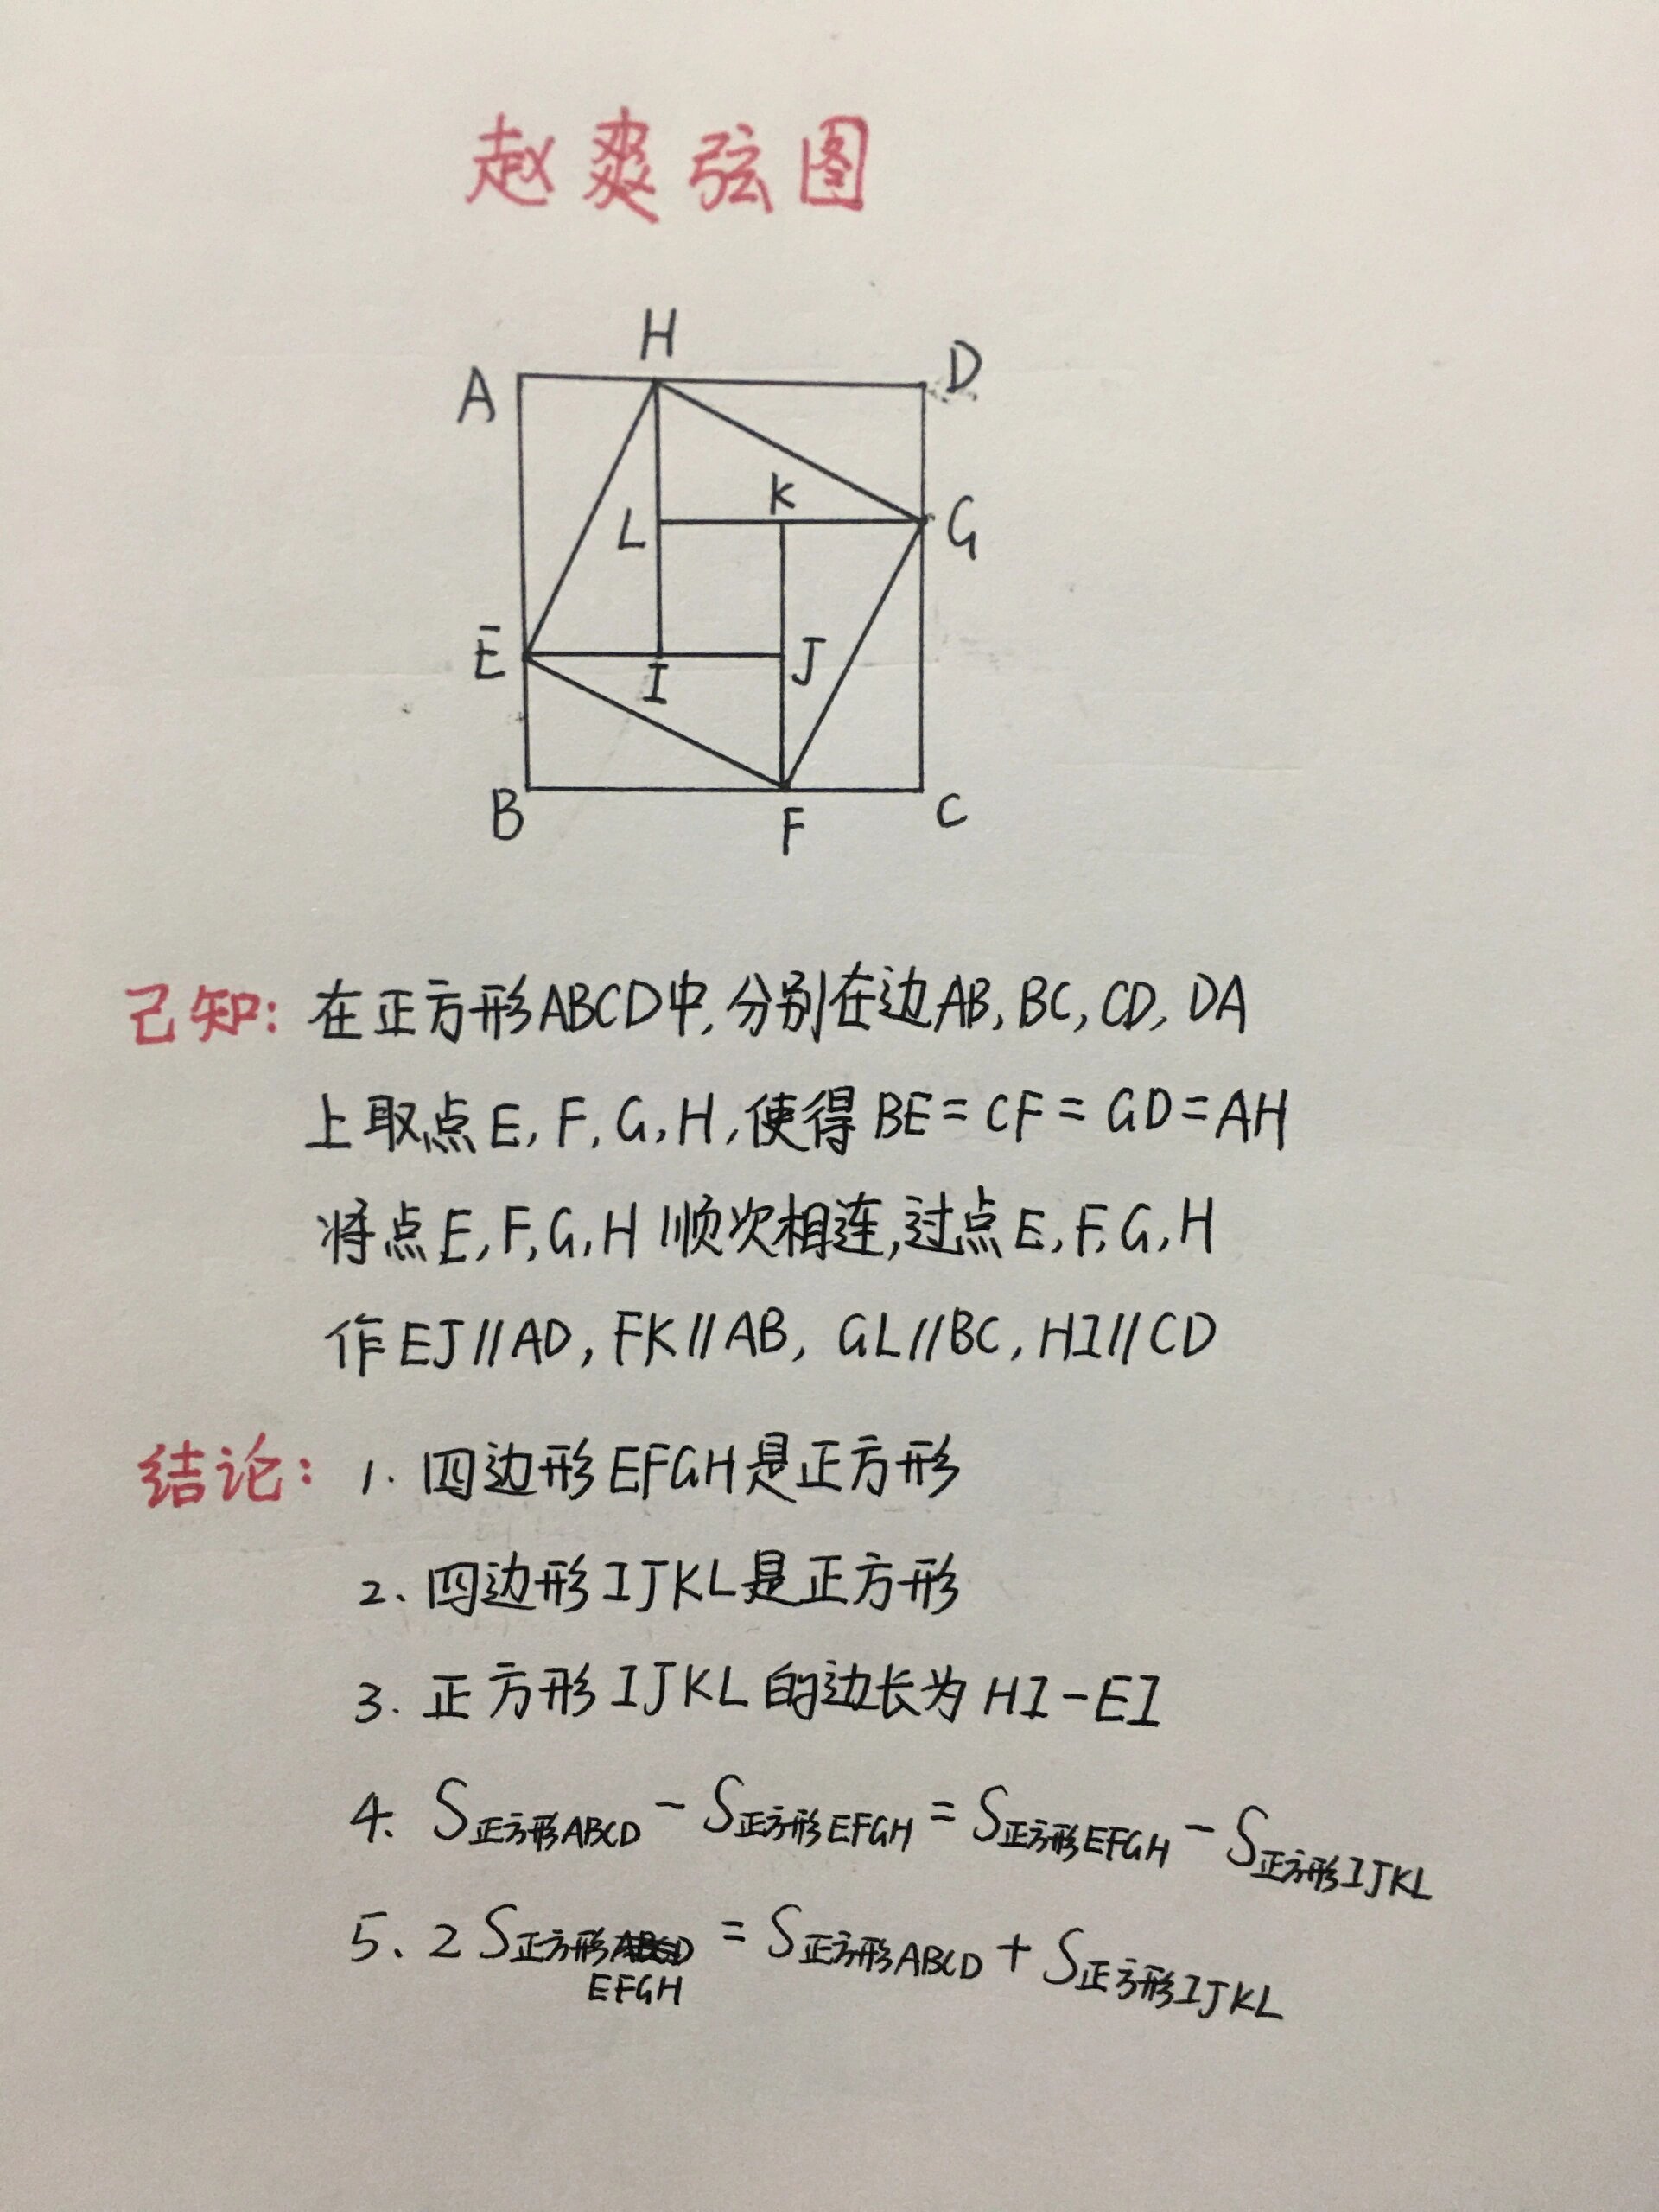 赵爽弦图
H
A
D
K
L
G
E
I
J
B
F
C
己知: 在正方形ABCD中,分别在边AB,BC,CD,DA
上取点E,F,G,H,使得BE=CF=GD=AH
将点E,F,G,H顺次相连,过点E,F,G,H
作EJ//AD,FK//AB,GL//BC,HI//CD
结论: 1. 四边形EFGH是正方形
2. 四边形IJKL是正方形
3. 正方形IJKL的边长为HI-EI
4. S正方形ABCD - S正方形EFGH = S正方形EFGH - S正方形IJKL
5. 2S正方形EFGH = S正方形ABCD + S正方形IJKL